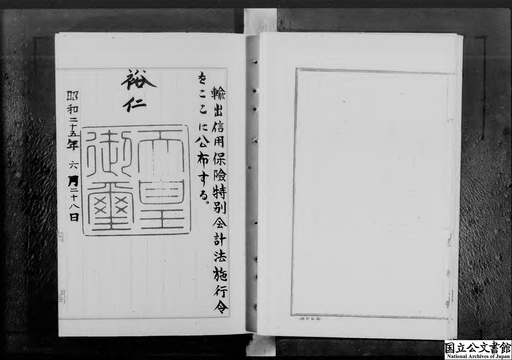 輸出信用保険特別会計法施行令
をここに公布する。
裕仁
天皇
御璽
昭和二十五年六月二十八日
国立公文書館
National Archives of Japan